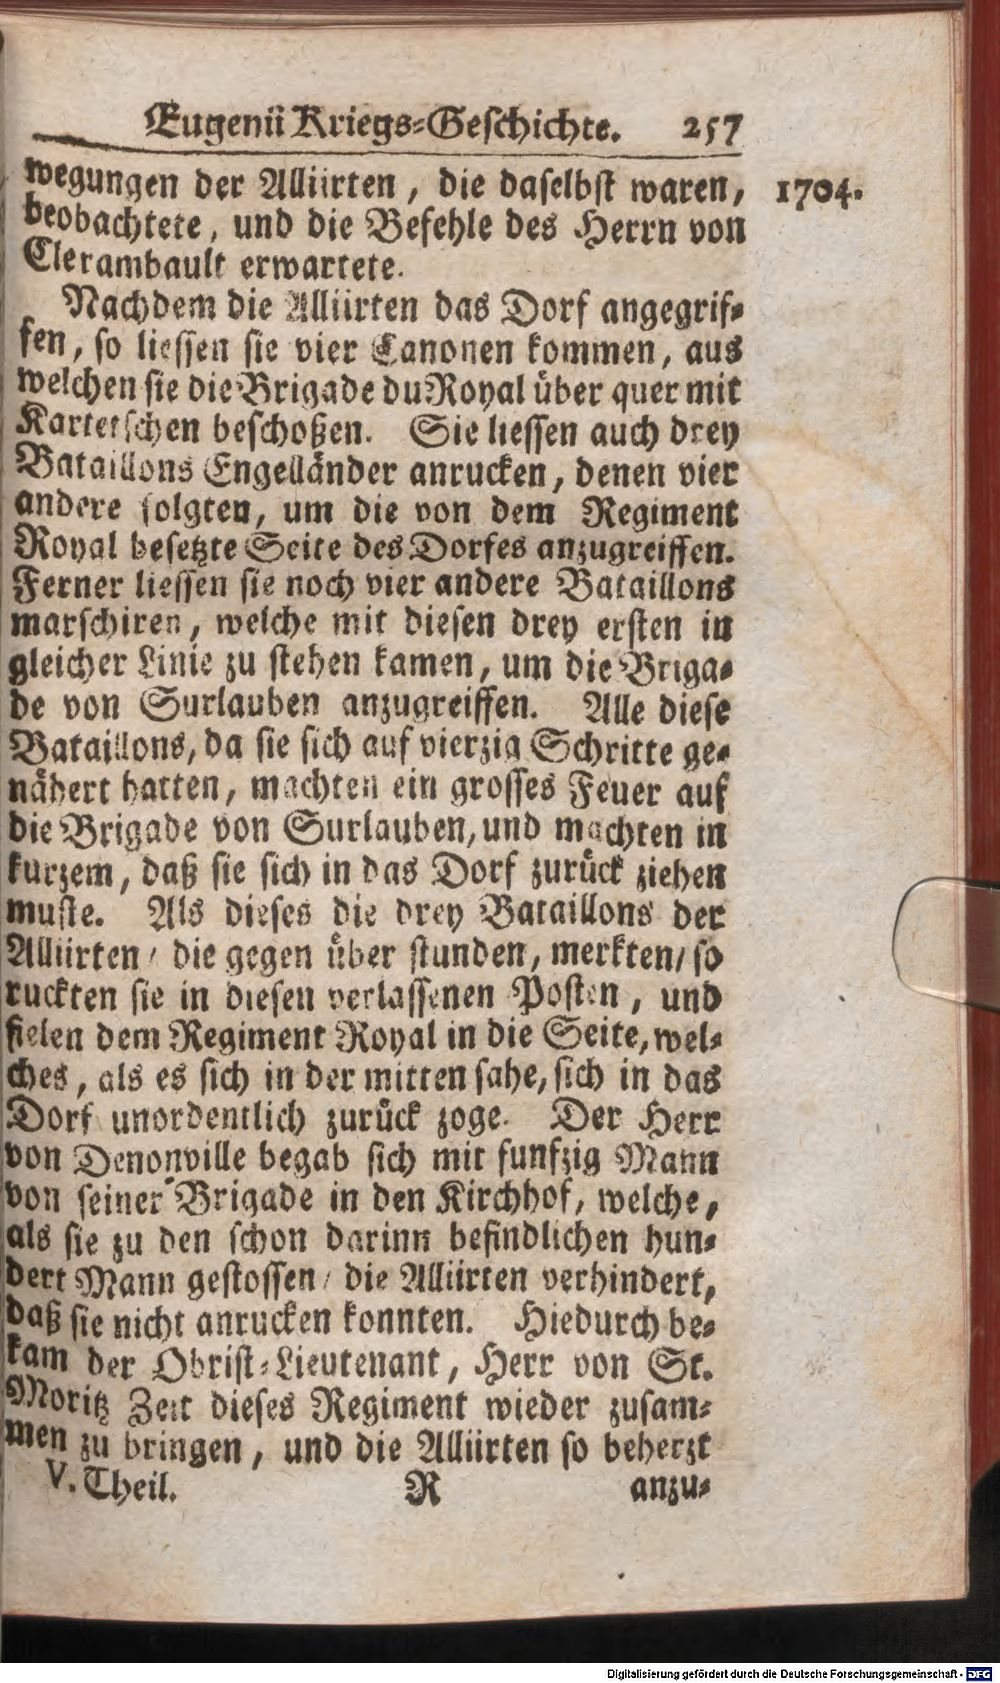 Eugenii Kriegs-Geschichte. 257
wegungen der Alliirten, die daselbst waren, 1704.
beobachtete, und die Befehle des Herrn von
Clerambault erwartete.
Nachdem die Alliirten das Dorf angegrif-
fen, so liessen sie vier Canonen kommen, aus
welchen sie die Brigade du Royal über quer mit
Kartetschen beschoßen. Sie liessen auch drey
Bataillons Engelländer anrucken, denen vier
andere folgten, um die von dem Regiment
Royal besetzte Seite des Dorfes anzugreiffen.
Ferner liessen sie noch vier andere Bataillons
marschiren, welche mit diesen drey ersten in
gleicher Linie zu stehen kamen, um die Briga-
de von Surlauben anzugreiffen. Alle diese
Bataillons, da sie sich auf vierzig Schritte ge-
nähert hatten, machten ein grosses Feuer auf
die Brigade von Surlauben, und machten in
kurzem, daß sie sich in das Dorf zurück ziehen
muste. Als dieses die drey Bataillons der
Alliirten/ die gegen über stunden, merkten/ so
ruckten sie in diesen verlassenen Posten, und
fielen dem Regiment Royal in die Seite, wel-
ches, als es sich in der mitten sahe, sich in das
Dorf unordentlich zurück zoge. Der Herr
von Denonville begab sich mit funfzig Mann
von seiner Brigade in den Kirchhof, welche,
als sie zu den schon darinn befindlichen hun-
dert Mann gestossen/ die Alliirten verhindert,
daß sie nicht anrucken konnten. Hiedurch be-
kam der Obrist-Lieutenant, Herr von St.
Moritz Zeit dieses Regiment wieder zusam-
men zu bringen, und die Alliirten so beherzt
V. Theil. R anzu-
Digitalisierung gefördert durch die Deutsche Forschungsgemeinschaft - DFG